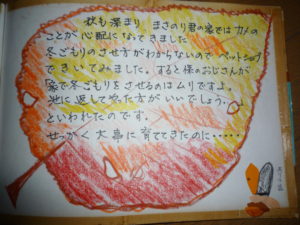 秋も深まり まさのり君の家ではカメの
ことが心配になってきました
冬ごもりのさせ方がわからないので ペットショップ
できいてみました。すると係のおじさんが
家で冬ごもりをさせるのはムリですよ。
池に返してやった方がいいでしょう・・
といわれたのです。
せっかく大事に育ててきたのに・・・・・・